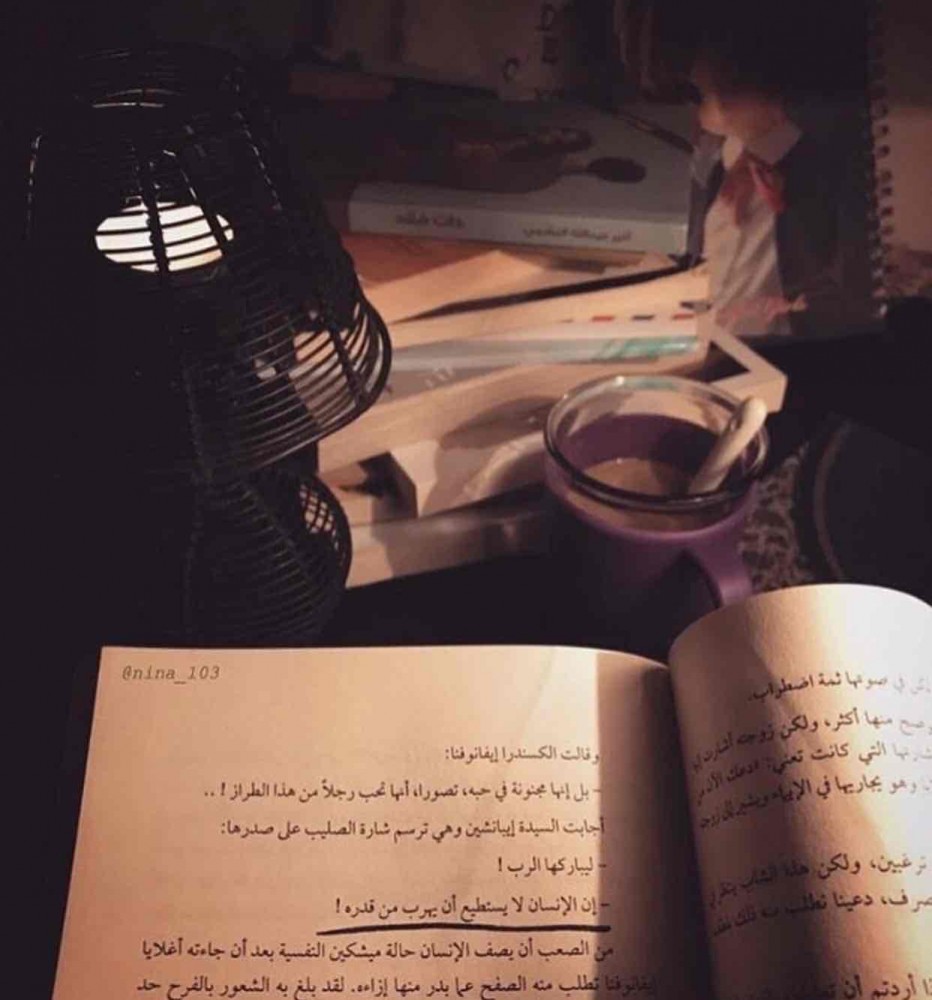 @nina_103
وقالت الكسندرا إيفانوفنا:
- بل إنها مجنونة في حبه، تصورا، أنها تحب رجلاً من هذا الطراز ! ..
أجابت السيدة إيبانشين وهي ترسم شارة الصليب على صدرها:
- ليباركها الرب !
- إن الإنسان لا يستطيع أن يهرب من قدره !
من الصعب أن يصف الإنسان حالة ميشكين النفسية بعد أن جاءته أغلايا
إيفانوفنا تطلب منه الصفح عما بدر منها إزاءه. لقد بلغ به الشعور بالفرح حد
في صوتها ثمة اضطراب.
منها أكثر، ولكن زوجته أشارت
التي كانت تعني:
وهو يجاريها في
ترغبين، ولكن هذا الشاب
دعينا نطلب منه ذلك
أردتم أن